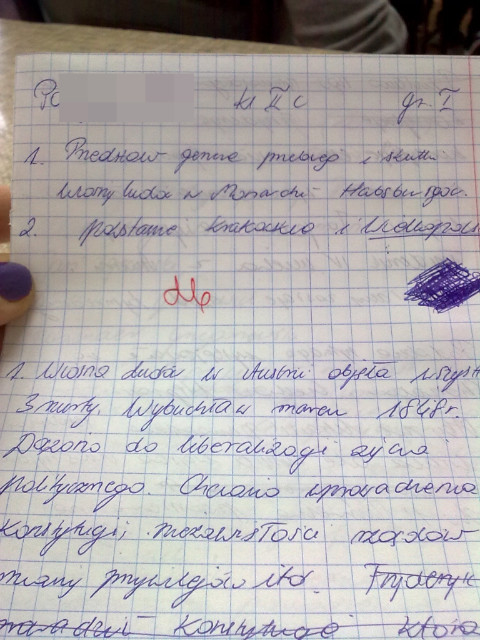 kl II c gr. I
1. Przedstaw genezę przebieg i skutki
Wiosny Ludów w Monarchii Habsburgów.
2. powstanie krakowskie i Wielkopol
1. Wiosna Ludów w Austrii objęła wszyst
3 nurty. Wybuchła w marcu 1848 r.
Dążono do liberalizacji życia
politycznego. Chciano wprowadzenia
Konstytucji, niezawisłości rządów
zmiany przywilejów itd. Fryderyk
Konstytucję która